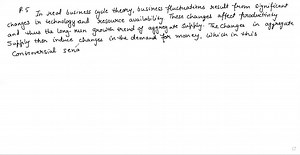 R5 In real business cycle theory, business fluctuations result from significant
changes in technology and resource availability. These changes affect productivity
and thus the long run growth trend of aggregate supply. The changes in aggregate
Supply then induce changes in the demand for money. Which in this
Controversial sena